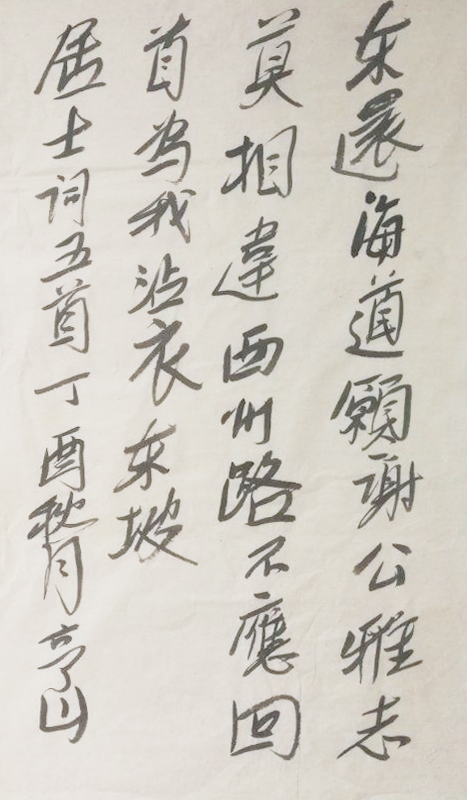 东還海道願謝公雅志
莫相違西州路不應回
首為我沾衣东坡
居士词五首丁酉秋月亭山